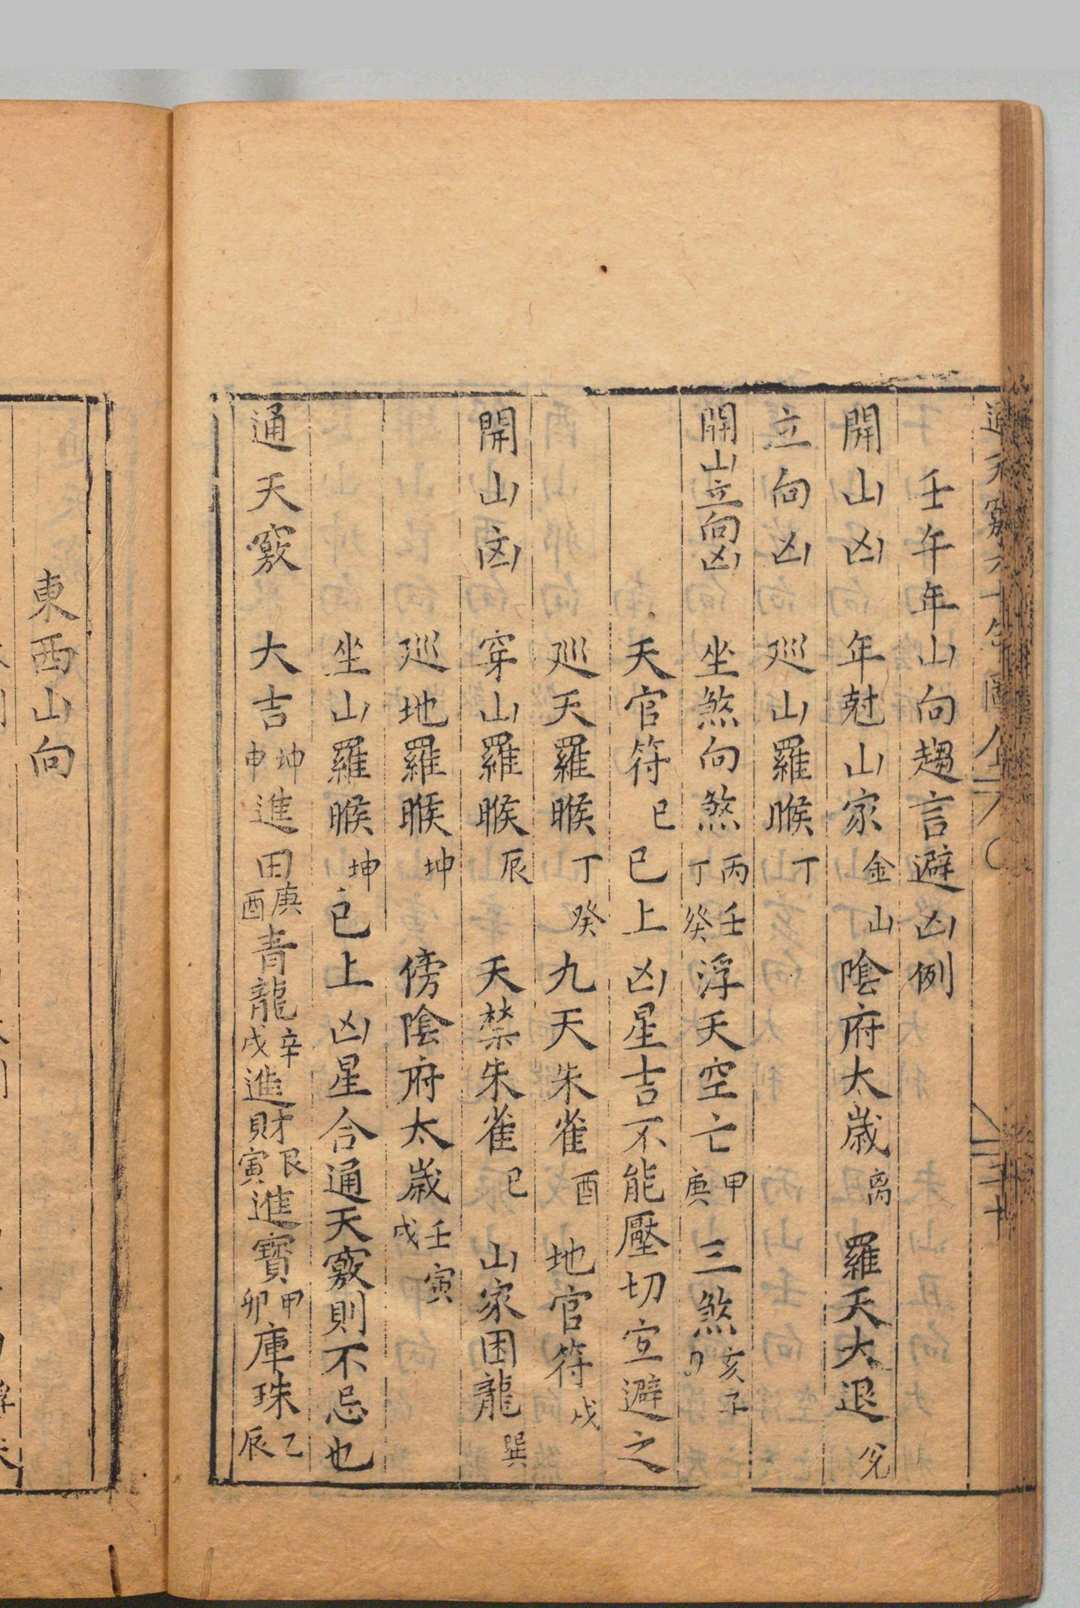 壬午年山向趨言避凶例
開山凶 年尅山家金山 隂府太歲离 羅天大退兊
立向凶 巡山羅睺丁
開山立向凶 坐煞向煞丙壬丁癸 浮天空亡甲庚 三煞亥子
天官符巳 已上凶星吉不能壓切宜避之
巡天羅睺丁癸 九天朱雀酉 地官符戌
開山凶 穿山羅睺辰 天禁朱雀巳 山家困龍巽
巡地羅睺坤 傍隂府太歲壬寅戌
坐山羅睺坤 已上凶星合通天竅則不忌也
通天竅 大吉坤申 進田庚酉 青龍辛戌 進財艮寅 進寶甲卯 庫珠乙辰
東西山向